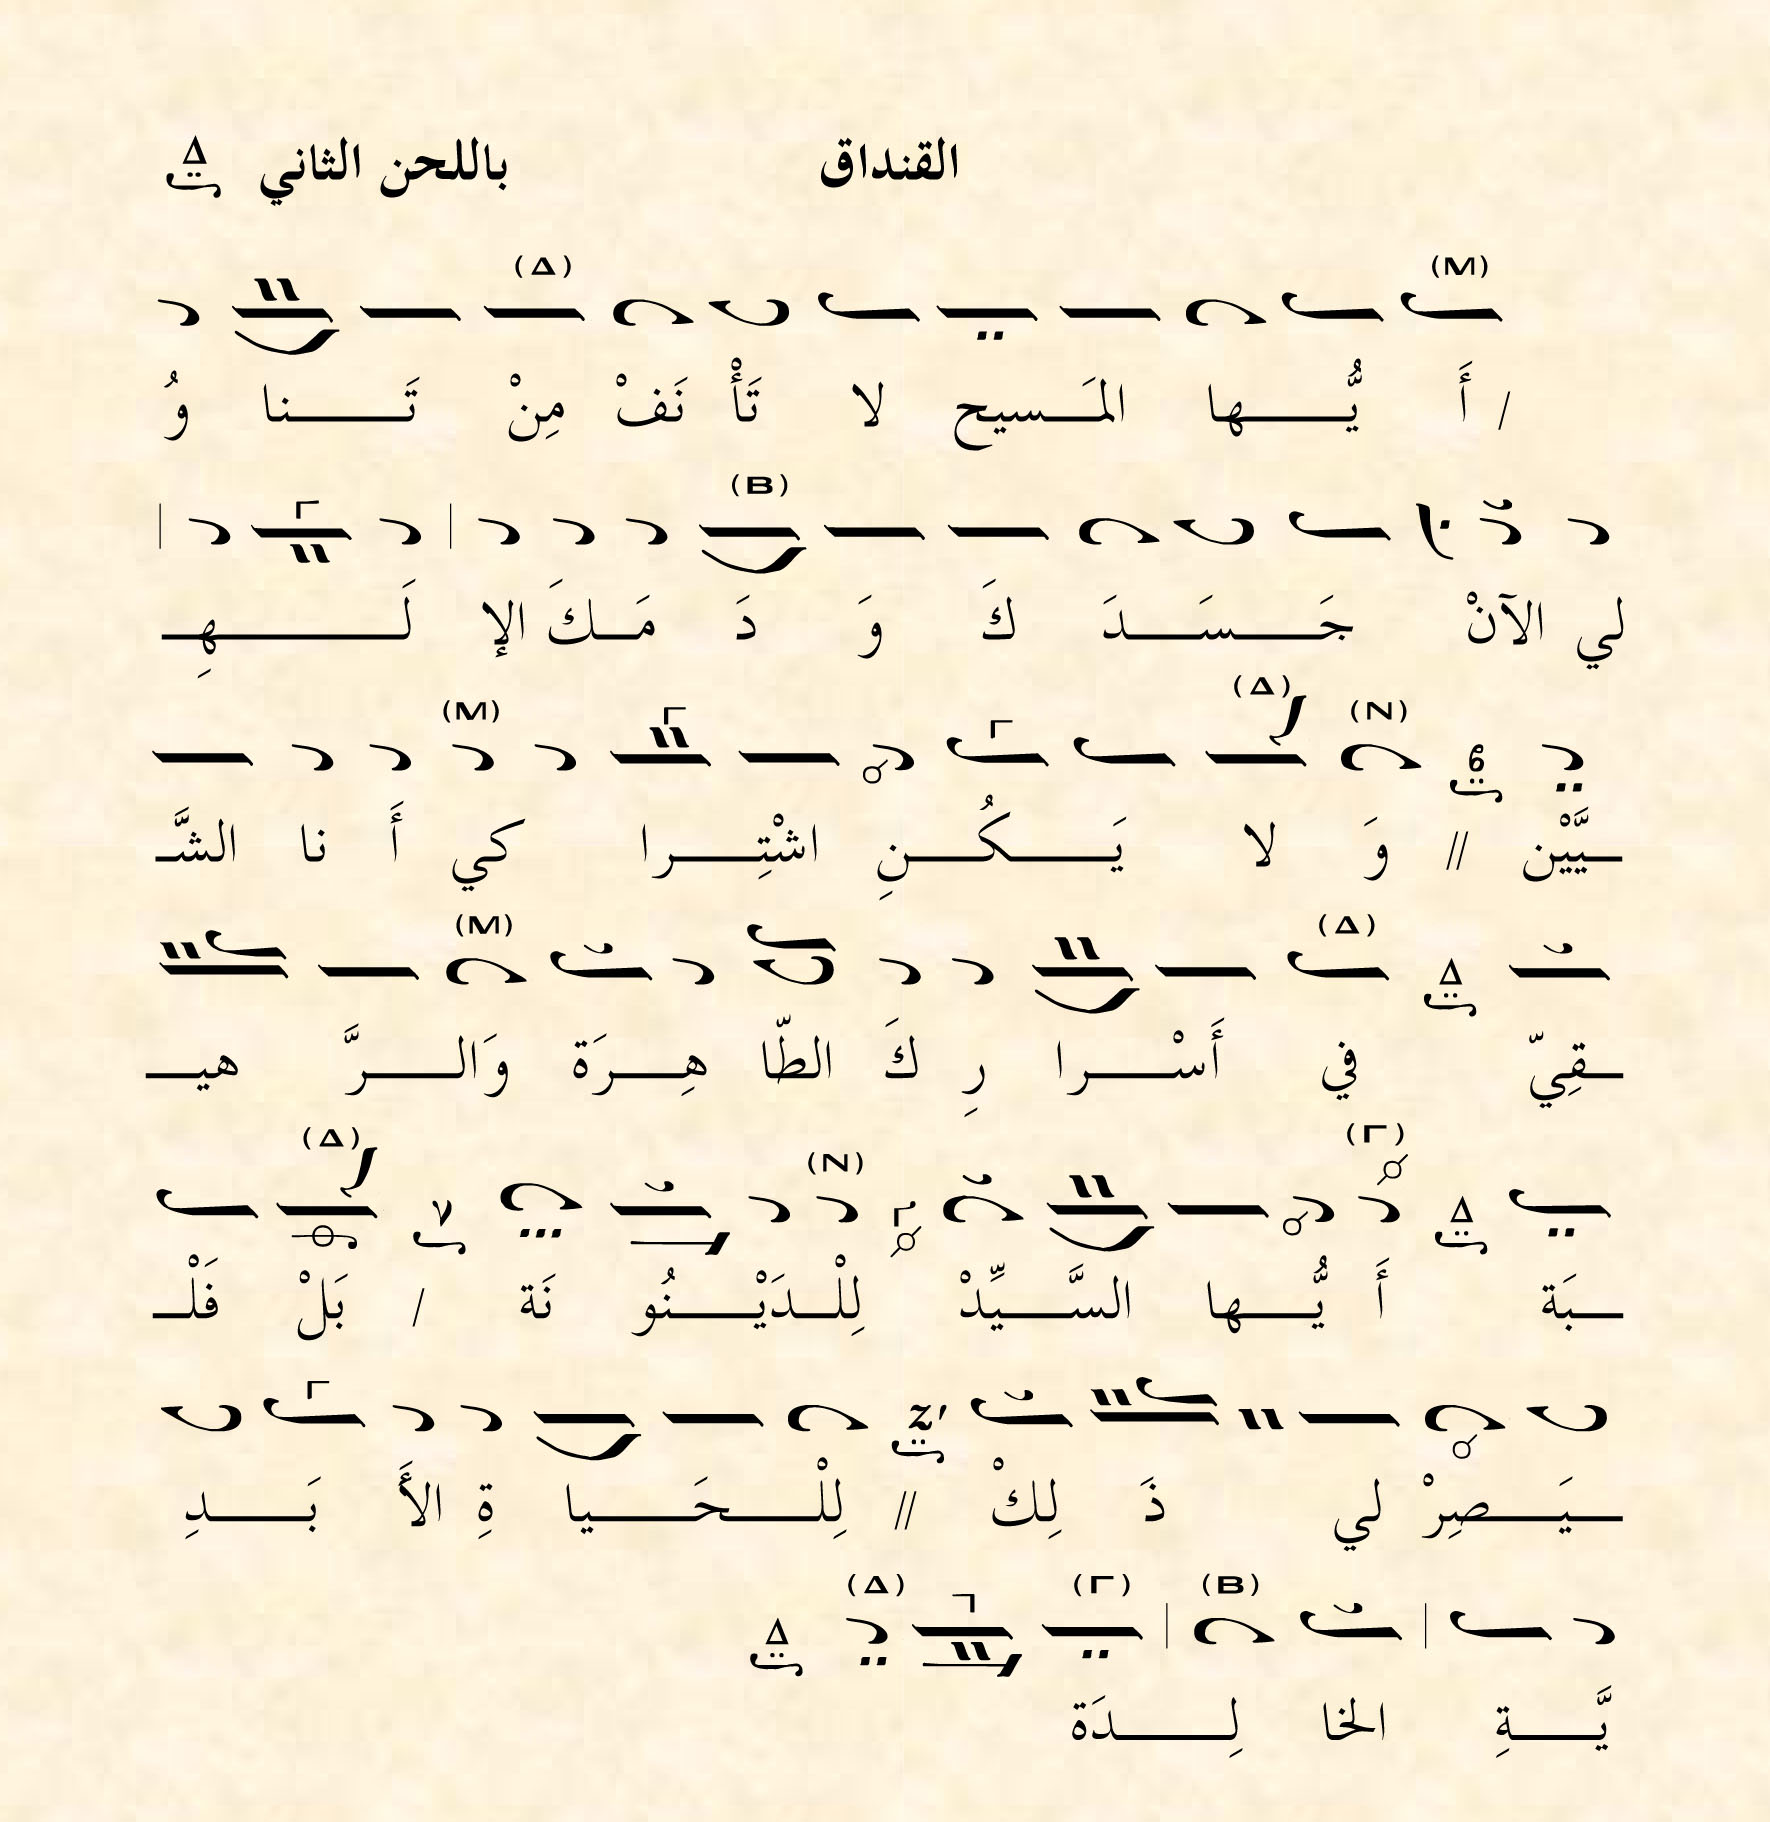 القنداق باللحن الثاني Δ
(M) (Δ)
/ أَ يُّـــها المَـــسيح لا تَأْ نَفْ مِنْ تَـــنا وُ
(B)
لي الآنْ جَـــسَـــدَ كَ وَ دَ مَـــكَ الإ لَـــهِـــ
(N) (Δ) (M)
ـــيَّيْن // وَ لا يَـــكُـــنِ اشْتِـــرا كي أَ نا الشَّـــ
(Δ) (M)
ـــقِيّ في أَسْـــرا رِ كَ الطّا هِـــرَة وَالـــرَّ هيـــ
(Γ) (N) (Δ)
ـــبَة أَ يُّـــها السَّـــيِّدْ لِلْـــدَيْـــنُو نَة / بَلْ فَلْـــ
ـــيَـــصِرْ لي ذَ لِكْ // لِلْـــحَـــيا ةِ الأَ بَـــدِ
(B) (Γ) (Δ) Δ
يَّـــةِ الخا لِـــدَة